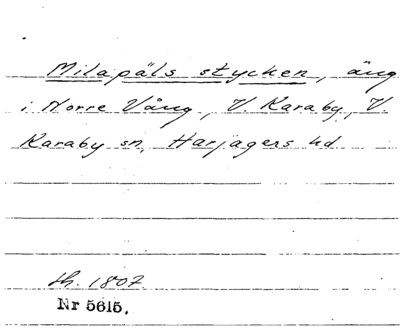 Milapåls stycken, äng
i Norre Vång, V. Karaby, V.
Karaby sn, Harjagers hd
sh. 1807
Nr 5615.